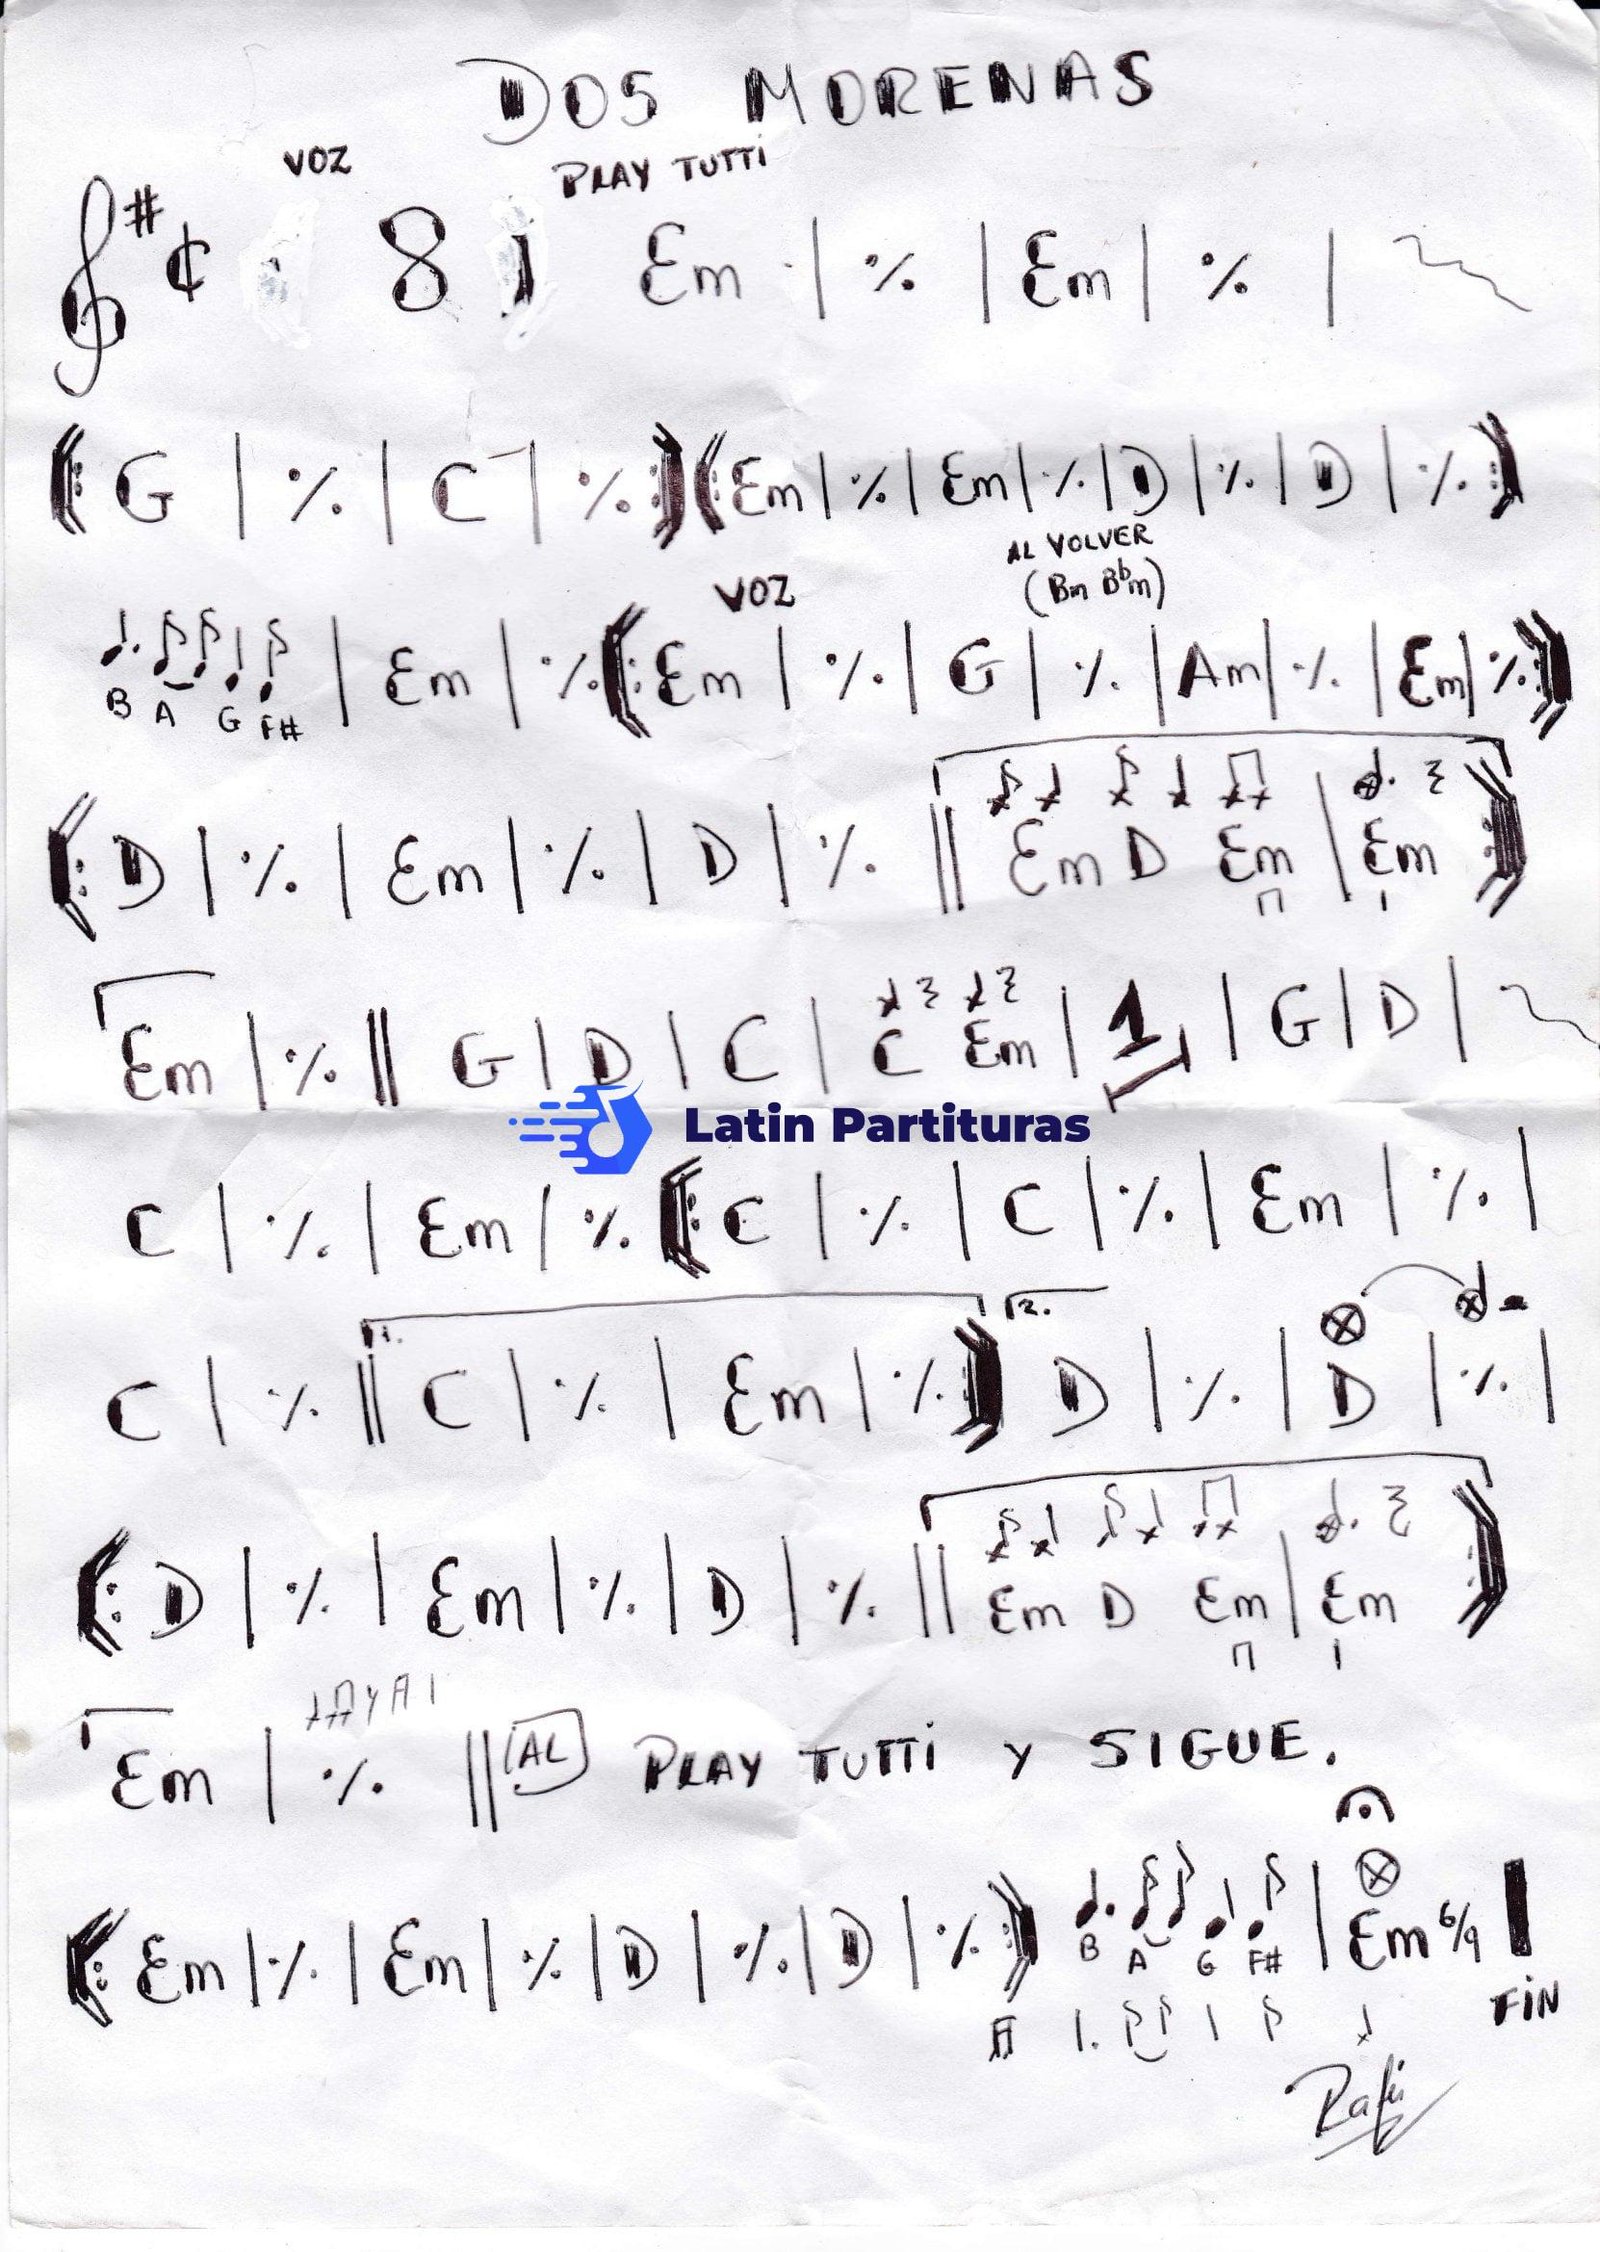 DOS MORENAS
VOZ PLAY TUTTi
# ¢ 8 Em | ٪ | Em | ٪ |
G | ٪ | C | ٪ :) (: Em | ٪ | Em | ٪ | D | ٪ | D | ٪ :)
AL VOLVER
VOZ (Bm Bbm)
B A G F# | Em | ٪ (: Em | ٪ | G | ٪ | Am | ٪ | Em | ٪ :)
(: D | ٪ | Em | ٪ | D | ٪ || Em D Em | Em :)
Em | ٪ || G | D | C | C Em | 1 | G | D |
Latin Partituras
C | ٪ | Em | ٪ (: C | ٪ | C | ٪ | Em | ٪ |
1. 2.
C | ٪ || C | ٪ | Em | ٪ :) D | ٪ | D | ٪ |
(: D | ٪ | Em | ٪ | D | ٪ || Em D Em | Em :)
Em | ٪ || AL PLAY TUTTi Y SIGUE.
(: Em | ٪ | Em | ٪ | D | ٪ | D | ٪ :) B A G F# | Em 6/9
FiN
Rafi